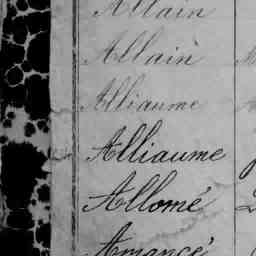 Allain
Allain
Alliaume
Alliaume
Allomé
Amancé